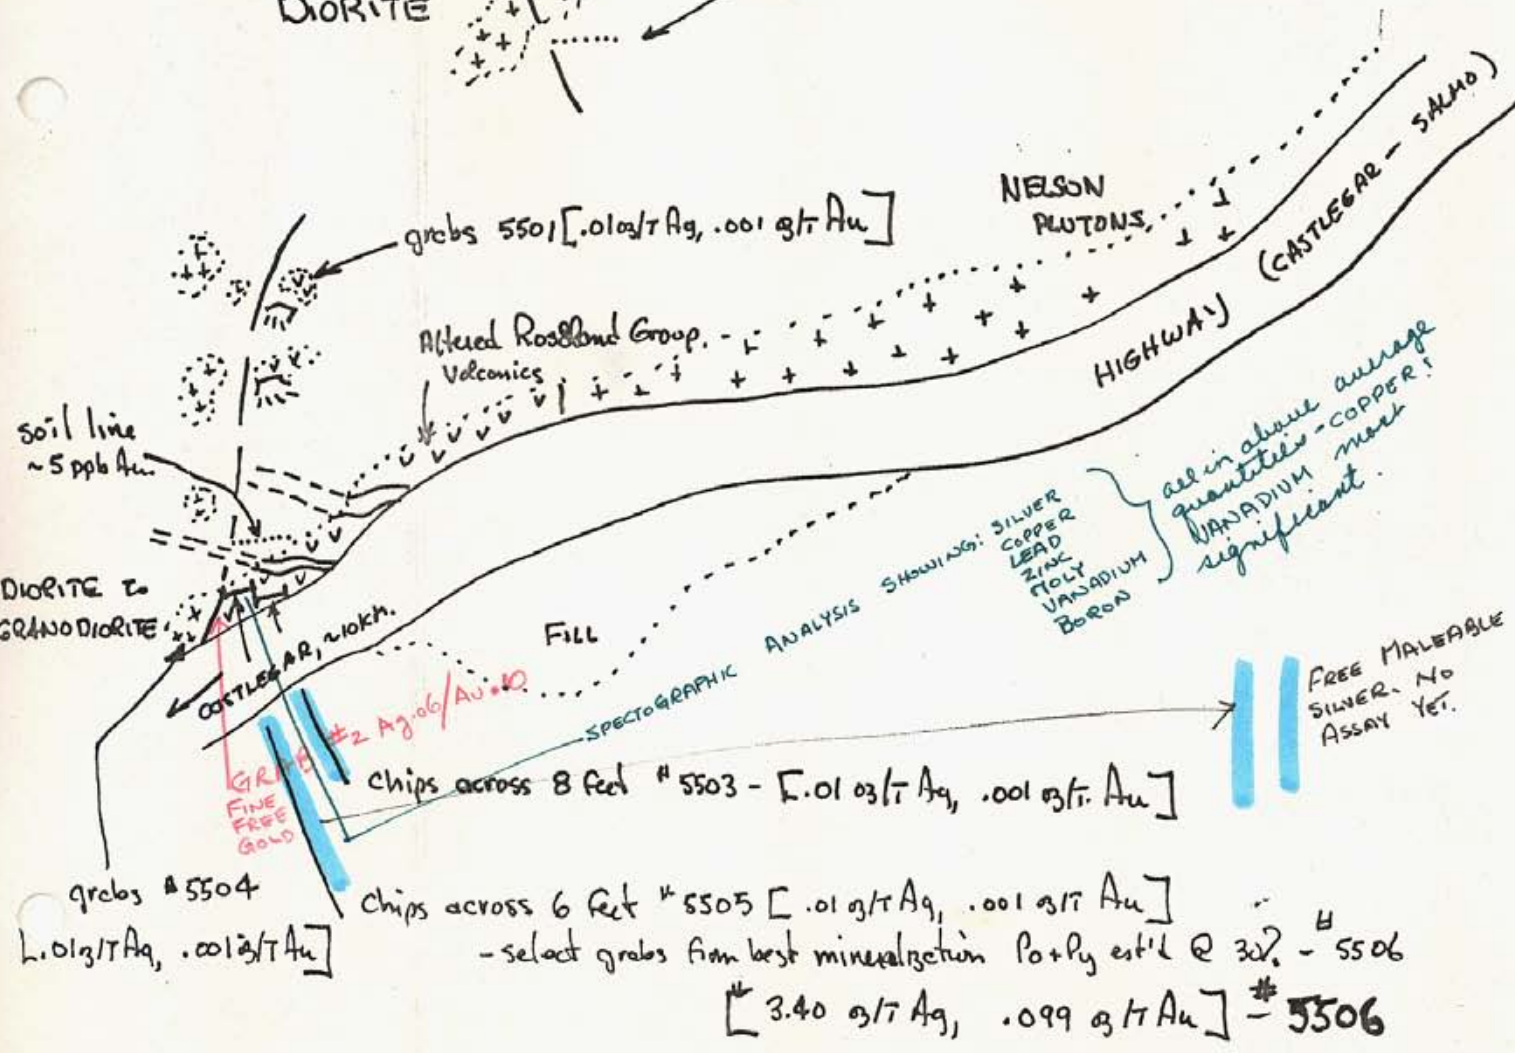 DIORITE
grabs 5501 [.01oz/T Ag, .001 oz/T Au]
NELSON
PLUTONS
HIGHWAY (CASTLEGAR - SALMO)
Altered Rossland Group.
Volcanics
soil line
~5 ppb Au.
DIORITE to
GRANODIORITE
COSTLEGAR, ~10km.
FILL
SPECTOGRAPHIC ANALYSIS SHOWING: SILVER
COPPER
LEAD
ZINC
MOLY
VANADIUM
BORON
all in above average
quantities - COPPER!
VANADIUM most
significant.
FREE MALEABLE
SILVER. NO
ASSAY YET.
GRAB #2 Ag.06/Au.10
FINE
FREE
GOLD
Chips across 8 feet #5503 - [.01 oz/T Ag, .001 oz/T. Au]
grabs #5504
[.01oz/T Ag, .001oz/T Au]
Chips across 6 feet #5505 [.01 oz/T Ag, .001 oz/T Au]
- select grabs from best mineralization Po+Py est'd @ 30% - #5506
[3.40 oz/T Ag, .099 oz/T Au] - #5506